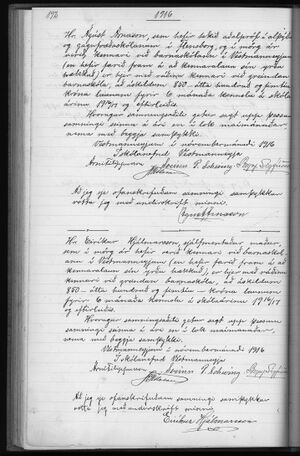 1916
Hr. Ágúst Árnason, sem hefir tekið aðalpróf í alþýðu
og gagnfræðaskólanum í Flensborg, og í mörg ár
verið kennari við barnaskólann í Vestmannaeyjum
(en hefir farið fram á að kennaralaun sín yrðu
hækkuð), er hjer með ráðinn kennari við greindan
barnaskóla, að áskildum 850 - átta hundruð og fimmtíu
króna launum fyrir 6 mánaða kennslu á
skólaárinu 1916/17 og eftirleiðis.
Hvorugur samningsaðila getur sagt upp þessum
samningi seinna á ári en í lok maímánaðar,
nema með beggja samþykki.
Vestmannaeyjum í nóvembermánuði 1916
Í skólanefnd Vestmannaeyja
Jes A. Gíslason
Að jeg er ofanskráðum samningi samþykkur
votta jeg með undirskrift minni.
Ágúst Árnason
Hr. Eiríkur Hjálmarsson, sjálfmenntaður maður,
sem í mörg ár hefir verið kennari við barnaskól-
ann í Vestmannaeyjum (en hefir farið fram á að
kennaralaun sín yrðu hækkuð), er hjer með ráðinn
kennari við greindan barnaskóla, að áskildum
850 - átta hundruð og fimmtíu - króna launum
fyrir 6 mánaða kennslu á skólaárinu 1916/17
og eftirleiðis.
Hvorugur samningsaðila getur sagt upp þessum
samningi seinna á ári en í lok maímánaðar,
nema með beggja samþykki.
Vestmannaeyjum í nóvembermánuði 1916
Í skólanefnd Vestmannaeyja
Að jeg er ofanskráðum samningi samþykkur
votta jeg með undirskrift minni.
Eiríkur Hjálmarsson